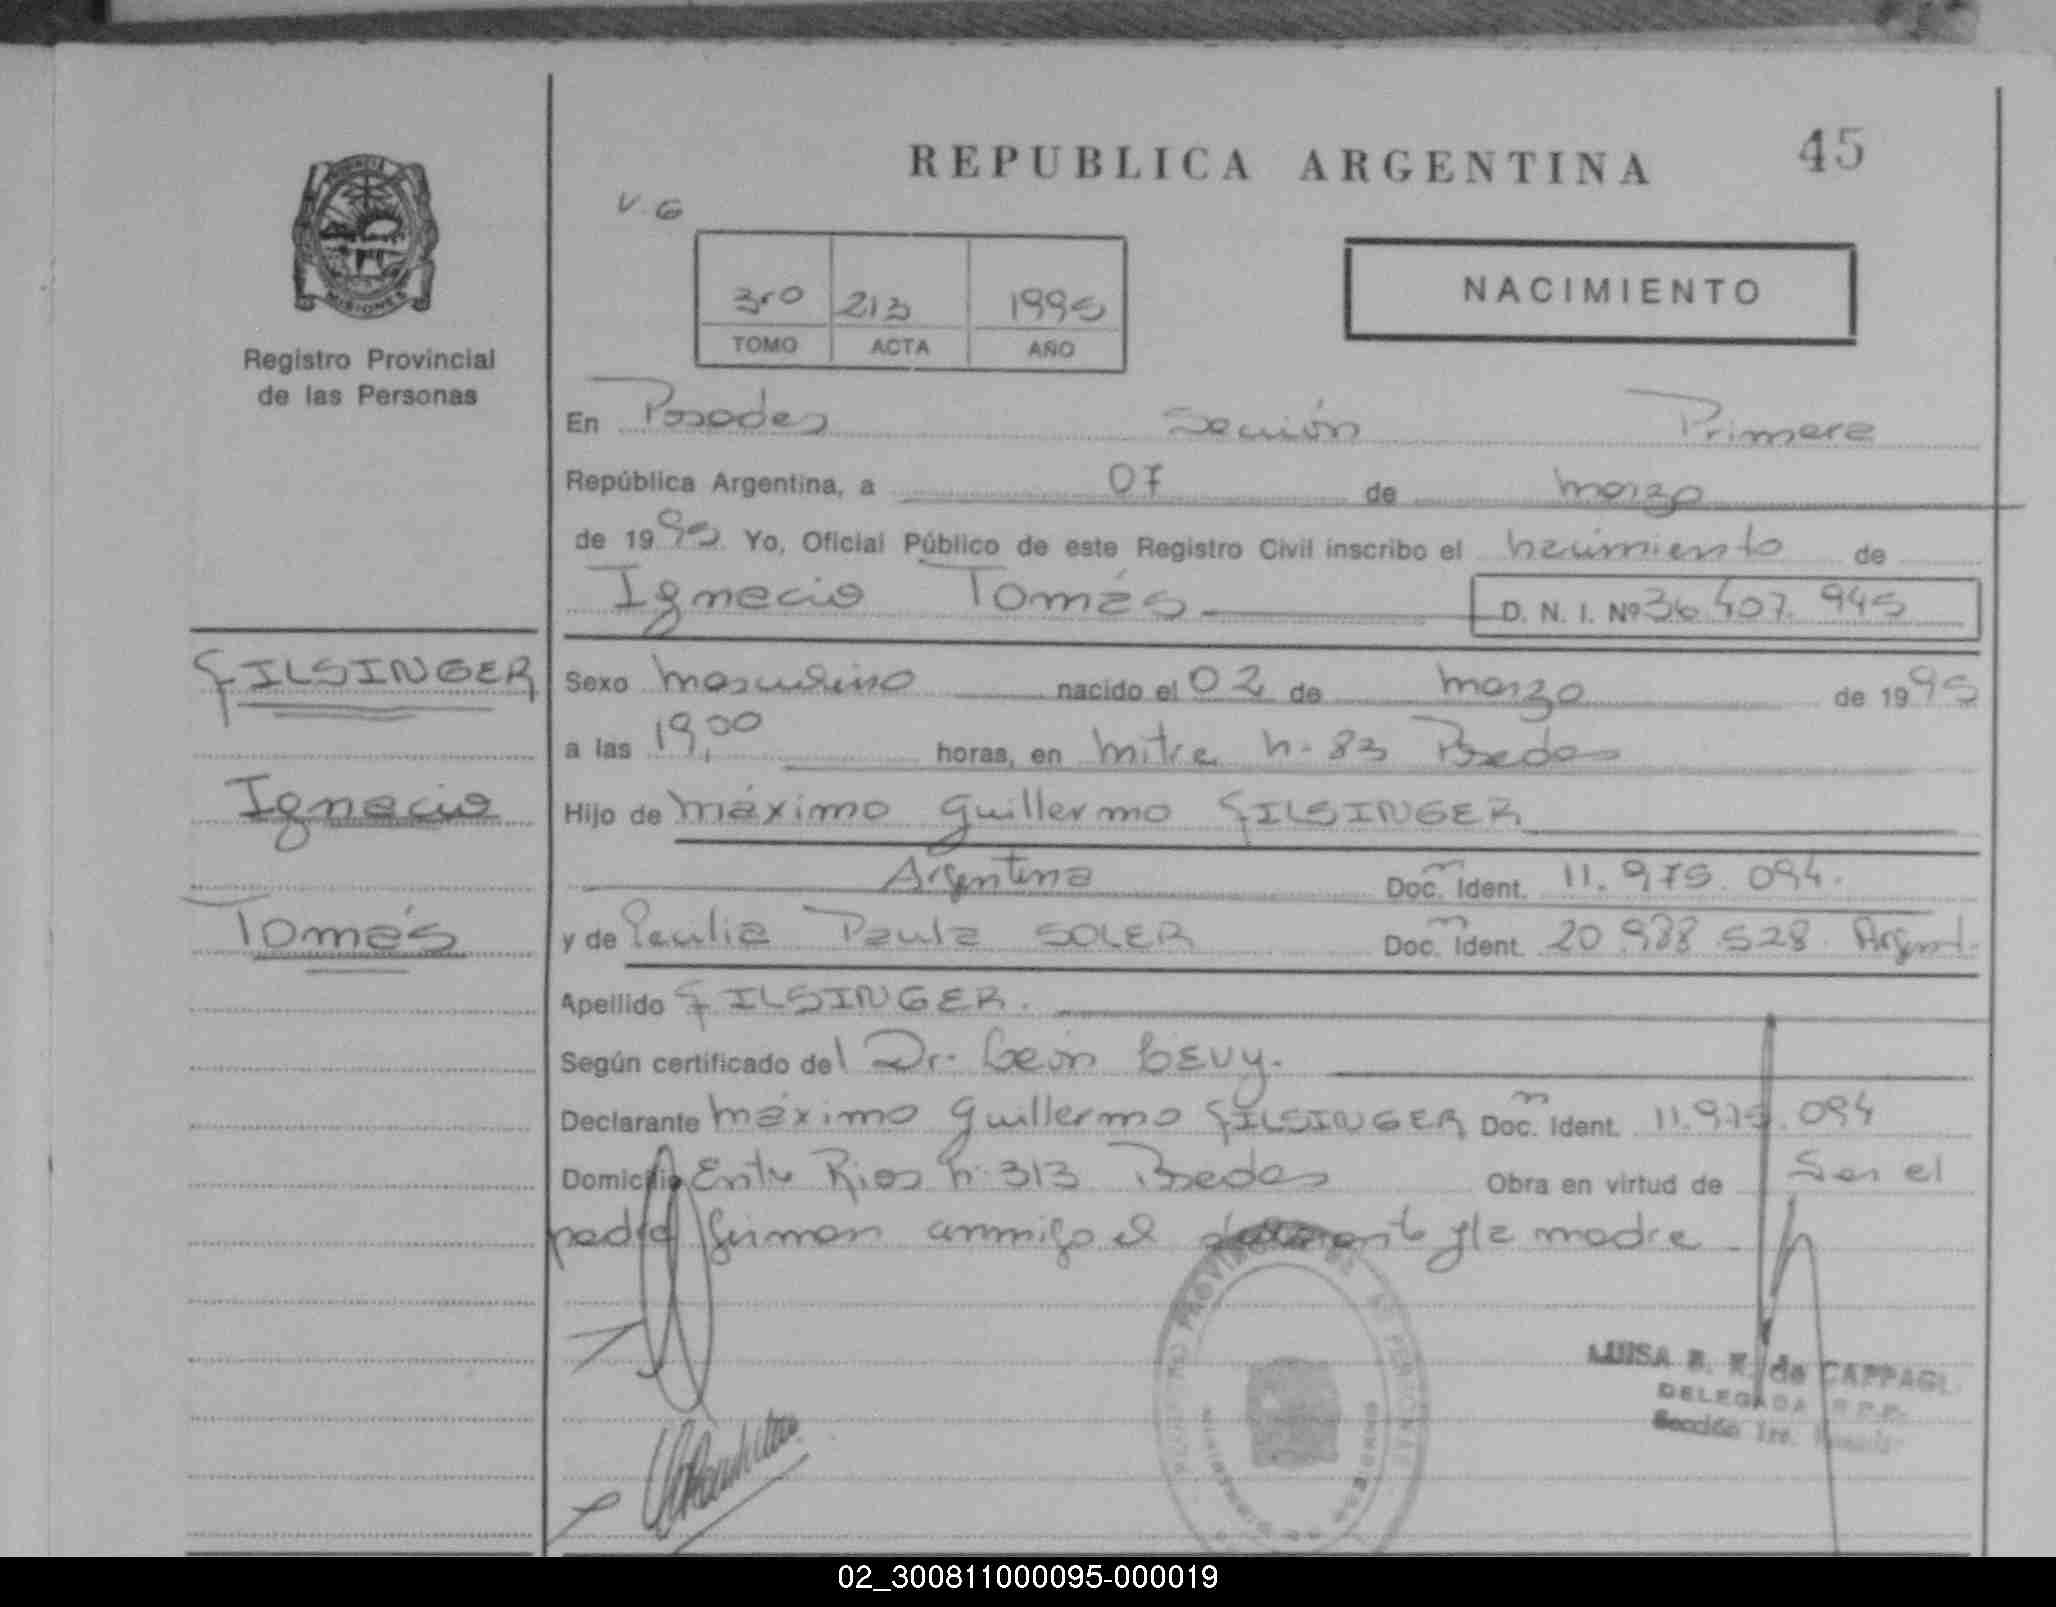 REPUBLICA ARGENTINA 45
V. G
3ro 213 1995
TOMO ACTA AÑO
NACIMIENTO
MISIONES
Registro Provincial
de las Personas
En Posadas Sección Primera
República Argentina, a 07 de marzo
de 1995 Yo, Oficial Público de este Registro Civil inscribo el nacimiento de
Ignacio Tomás D. N. I. Nº 36.407.945
GILSINGER
Sexo masculino nacido el 02 de marzo de 1995
a las 19,00 horas, en Mitre n- 83 Posadas
Ignacio
Hijo de Máximo Guillermo GILSINGER
Argentina Doc. Ident. 11.975.094.
Tomás
y de Paula SOLER Doc. Ident. 20.988.528. Argent.
Apellido GILSINGER.
Según certificado del Dr. León LEVY.
Declarante Máximo Guillermo GILSINGER Doc. Ident. 11.975.094
Domicilio Entre Rios n- 313 Posadas Obra en virtud de ser el
padre firman conmigo el y la madre
LUISA de CAPPAGLI
DELEGADA R.P.P.
Sección 1ra.
02_300811000095-000019